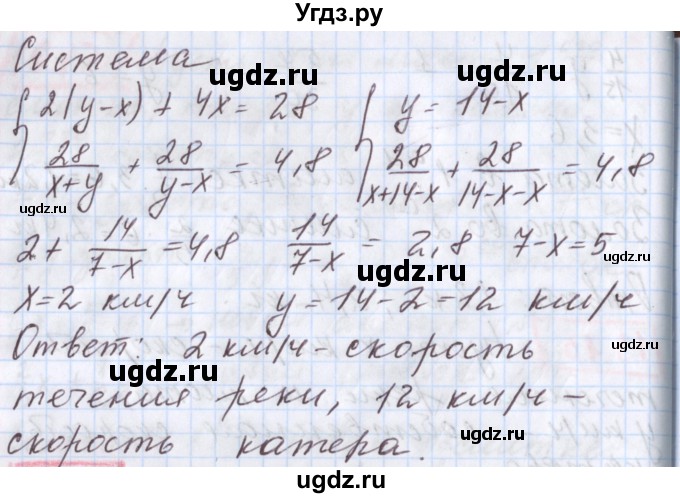 Угдз.ру
Система
{ 2(y-x) + 4x = 28 { y = 14-x
28/(x+y) + 28/(y-x) = 4,8 28/(x+14-x) + 28/(14-x-x) = 4,8
2 + 14/(7-x) = 4,8 14/(7-x) = 2,8 7-x = 5
x = 2 км/ч y = 14-2 = 12 км/ч
Ответ: 2 км/ч - скорость
течения реки, 12 км/ч -
скорость катера.
ugdz.ru
ugdz.ru
ugdz.ru
ugdz.ru
ugdz.ru
ugdz.ru
ugdz.ru
ugdz.ru
ugdz.ru
ugdz.ru
ugdz.ru
Угдз.ру